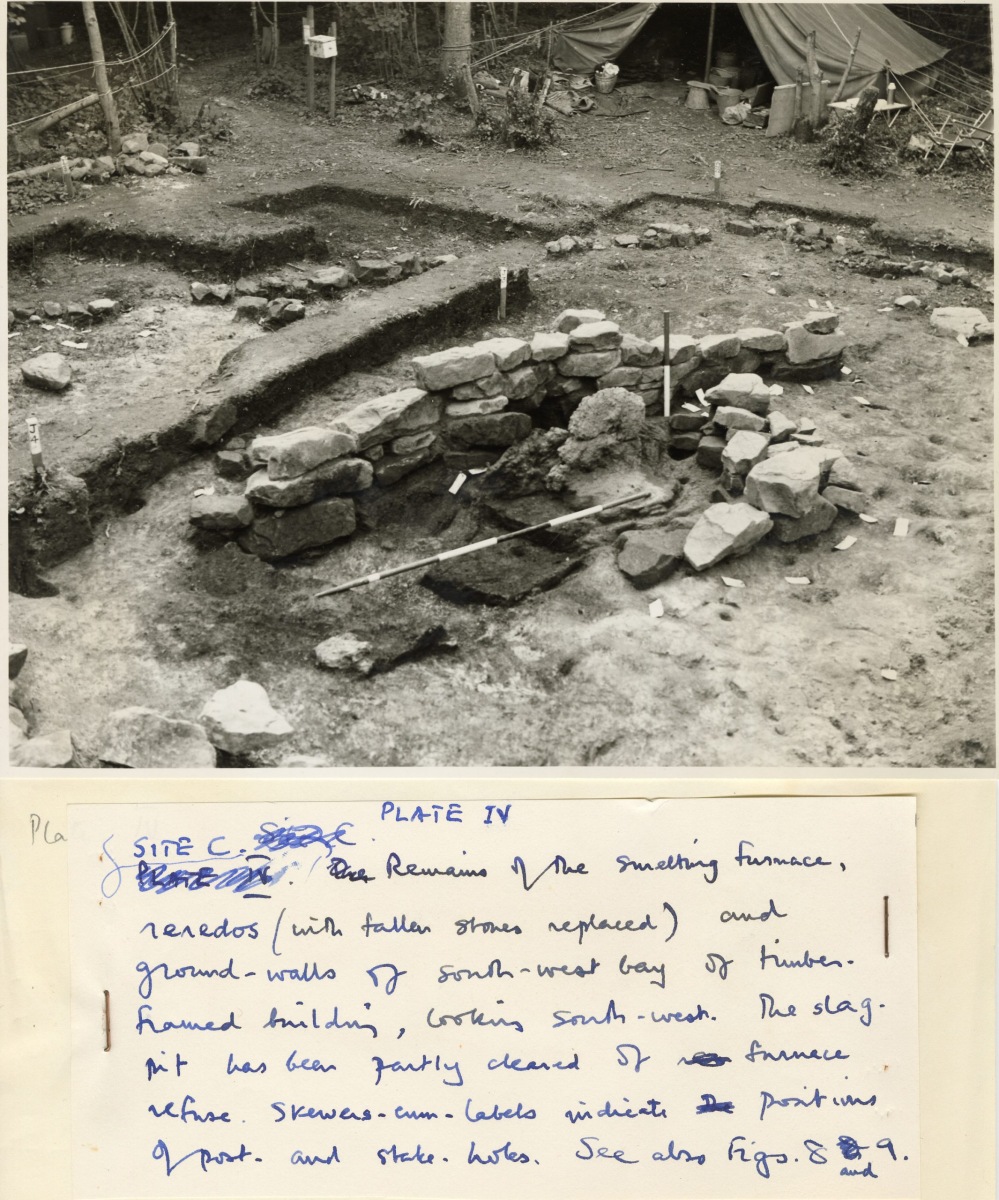 J4
Pla
PLATE IV
SITE C.
Remains of the smelting furnace,
reredos (with fallen stones replaced) and
ground-walls of south-west bay of timber-
framed building, looking south-west. The slag-
pit has been partly cleared of furnace
refuse. Skewers-cum-labels indicate positions
of post- and stake-holes. See also Figs. 8 and 9.